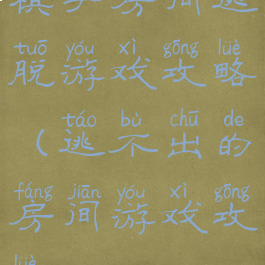 棋子房间逃
tuō yóu xì gōng lüè
脱游戏攻略
táo bù chū de
（逃不出的
fáng jiān yóu xì gōng
房间游戏攻
lüè